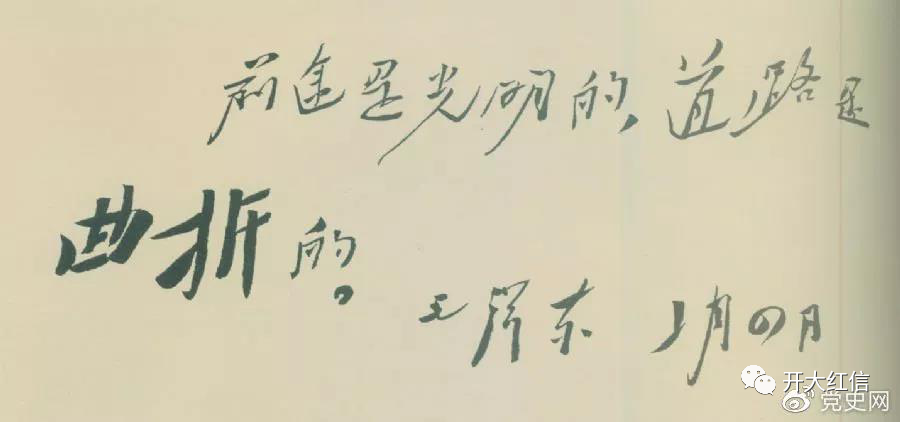 前途是光明的,道路是
曲折的。
毛泽东 月四日
开大红信
党史网